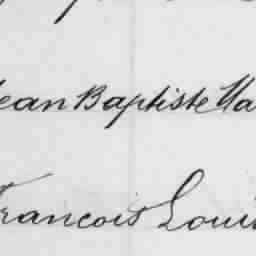 Jean Baptiste Ha
Francois Louis